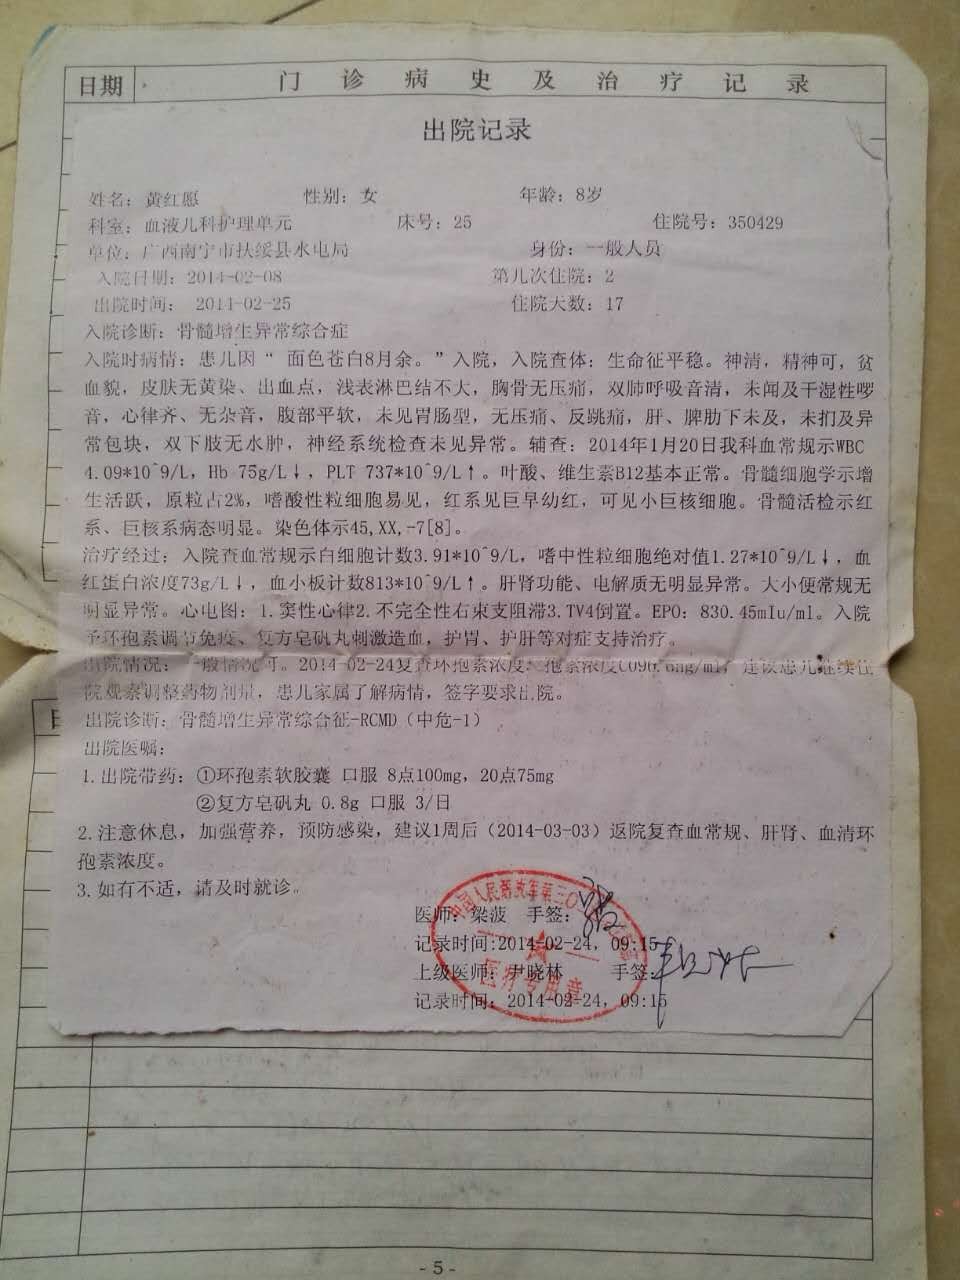 日期 门诊病史及治疗记录
出院记录
姓名：黄红愿 性别：女 年龄：8岁
科室：血液儿科护理单元 床号：25 住院号：350429
单位：广西南宁市扶绥县水电局 身份：一般人员
入院日期：2014-02-08 第几次住院：2
出院时间： 2014-02-25 住院天数：17
入院诊断：骨髓增生异常综合症
入院时病情：患儿因“ 面色苍白8月余。”入院，入院查体：生命征平稳。神清，精神可，贫
血貌，皮肤无黄染、出血点，浅表淋巴结不大，胸骨无压痛，双肺呼吸音清，未闻及干湿性啰
音，心律齐、无杂音，腹部平软，未见胃肠型，无压痛、反跳痛，肝、脾肋下未及，未扪及异
常包块，双下肢无水肿，神经系统检查未见异常。辅查：2014年1月20日我科血常规示WBC
4.09*10^9/L，Hb 75g/L↓，PLT 737*10^9/L↑。叶酸、维生素B12基本正常。骨髓细胞学示增
生活跃，原粒占2%，嗜酸性粒细胞易见，红系见巨早幼红，可见小巨核细胞。骨髓活检示红
系、巨核系病态明显。染色体示45,XX,-7[8]。
治疗经过：入院查血常规示白细胞计数3.91*10^9/L，嗜中性粒细胞绝对值1.27*10^9/L↓，血
红蛋白浓度73g/L↓，血小板计数813*10^9/L↑。肝肾功能、电解质无明显异常。大小便常规无
明显异常。心电图：1.窦性心律2.不完全性右束支阻滞3.TV4倒置。EPO：830.45mIu/ml。入院
予环孢素调节免疫、复方皂矾丸刺激造血，护胃、护肝等对症支持治疗。
出院情况：一般情况可。2014-02-24复查环孢素浓度：孢素浓度 建议患儿继续住
院观察调整药物剂量，患儿家属了解病情，签字要求出院。
出院诊断：骨髓增生异常综合征-RCMD（中危-1）
出院医嘱：
1.出院带药：①环孢素软胶囊 口服 8点100mg，20点75mg
②复方皂矾丸 0.8g 口服 3/日
2.注意休息，加强营养，预防感染，建议1周后（2014-03-03）返院复查血常规、肝肾、血清环
孢素浓度。
3.如有不适，请及时就诊。
医师：梁菠 手签：
记录时间:2014-02-24，09:15
上级医师：尹晓林 手签：
记录时间：2014-02-24，09:15
中国人民解放军第三〇
医疗专用章
- 5 -